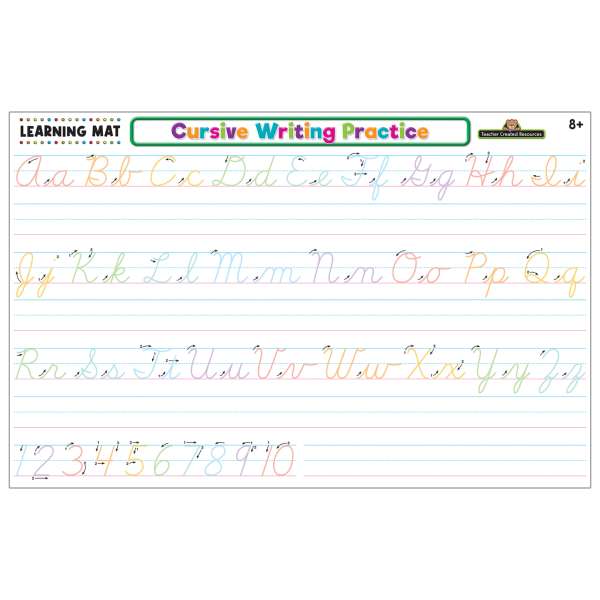 LEARNING MAT Cursive Writing Practice Teacher Created Resources 8+
Aa Bb Cc Dd Ee Ff Gg Hh Ii
Jj Kk Ll Mm Nn Oo Pp Qq
Rr Ss Tt Uu Vv Ww Xx Yy Zz
1 2 3 4 5 6 7 8 9 10